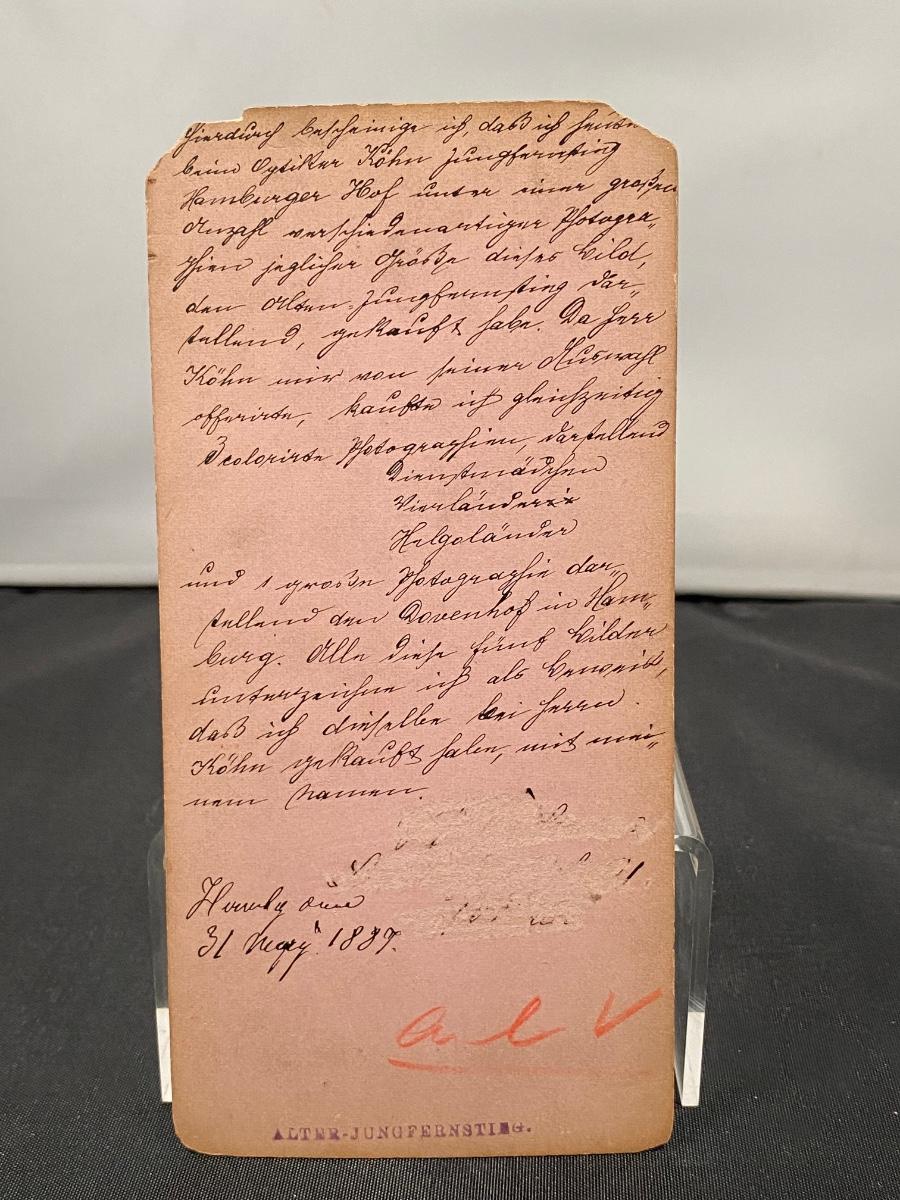 Hierdurch bescheinige ich, daß ich heute
beim Optiker Köhn Jungfernstieg
Hamburger Hof unter einer großen
Anzahl verschiedenartiger Photogra-
phien jeglicher Größe dieses Bild,
den Alten-Jungfernstieg dar-
stellend, gekauft habe. Da Herr
Köhn mir von seiner Auswahl
offerirte, kaufte ich gleichzeitig
3 colorirte Photographien, darstellend
Dienstmädchen
Vierländerin
Helgoländer
und 1 große Photographie dar-
stellend den Dovenhof in Ham-
burg. Alle diese fünf Bilder
unterzeichne ich als Beweis,
daß ich dieselbe bei Herrn
Köhn gekauft habe, mit mei-
nem Namen.
Hamburg den
31 May 1889.
ALTER-JUNGFERNSTIEG.